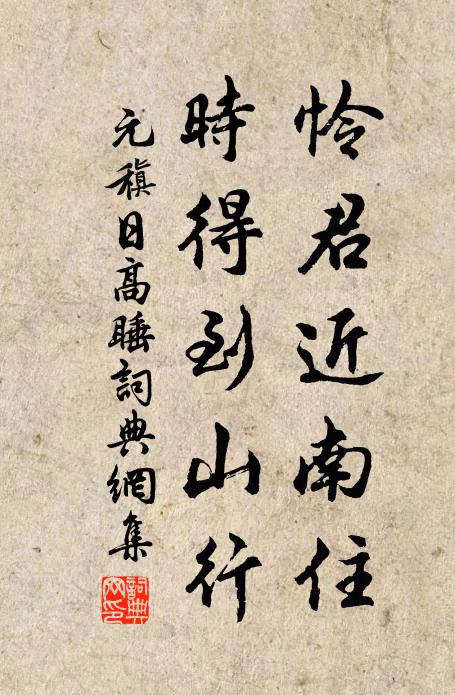 怜君近南住
時得到山行
元稹日高睡詞典網集
詞典網印